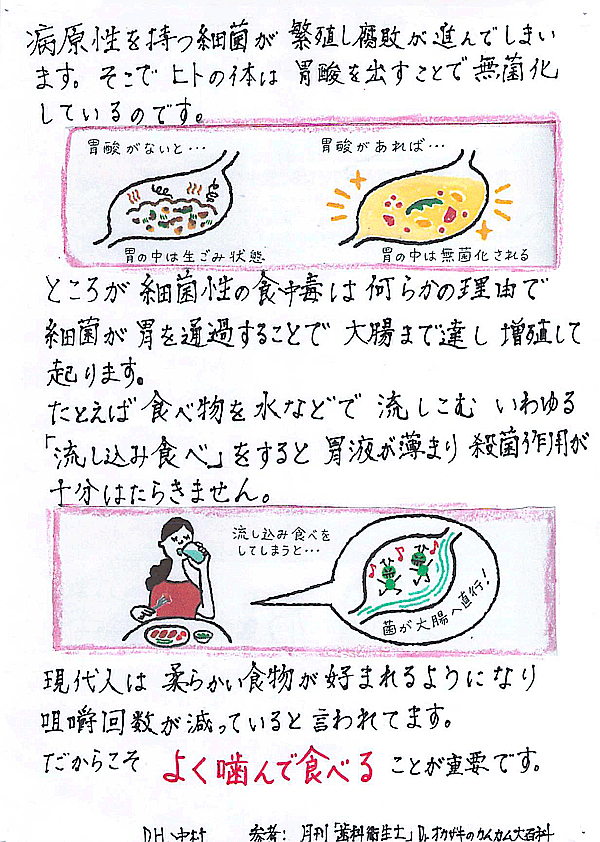 病原性を持つ細菌が 繁殖し腐敗が進んでしまい
ます。そこで ヒトの体は 胃酸を出すことで無菌化
しているのです。
胃酸がないと・・・
胃の中は生ごみ状態
胃酸があれば・・・
胃の中は無菌化される
ところが 細菌性の食中毒は 何らかの理由で
細菌が 胃を通過することで 大腸まで達し 増殖して
起ります。
たとえば 食べ物を 水などで 流しこむ いわゆる
「流し込み食べ」をすると 胃液が薄まり 殺菌作用が
十分はたらきません。
流し込み食べを
してしまうと・・・
菌が大腸へ直行!
現代人は 柔らかい食物が 好まれるようになり
咀嚼回数が 減っていると 言われてます。
だからこそ よく噛んで食べる ことが重要です。
DH 中村 参考: 月刊「歯科衛生士」Dr.オカザキのカムカム大百科